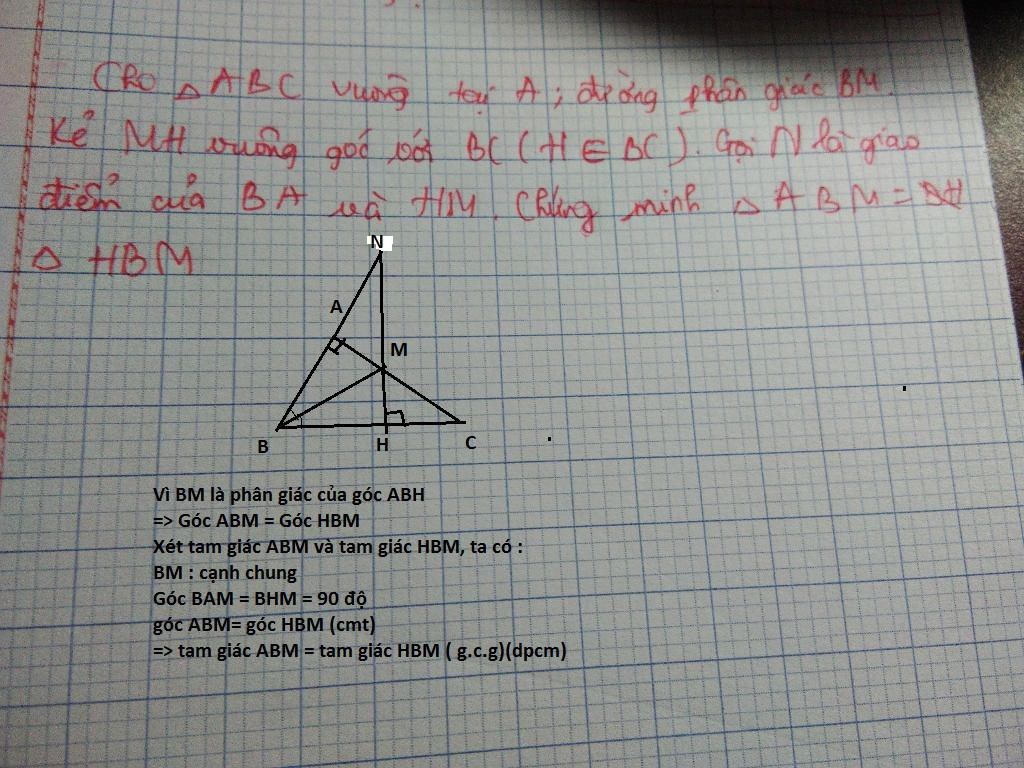 Cho △ABC vuông tại A; đường phân giác BM.
Kẻ MH vuông góc với BC (H ∈ BC). Gọi N là giao
điểm của BA và HM. Chứng minh △ABM =
△ HBM
N
A
M
B
H
C
Vì BM là phân giác của góc ABH
=> Góc ABM = Góc HBM
Xét tam giác ABM và tam giác HBM, ta có :
BM : cạnh chung
Góc BAM = BHM = 90 độ
góc ABM= góc HBM (cmt)
=> tam giác ABM = tam giác HBM ( g.c.g)(dpcm)